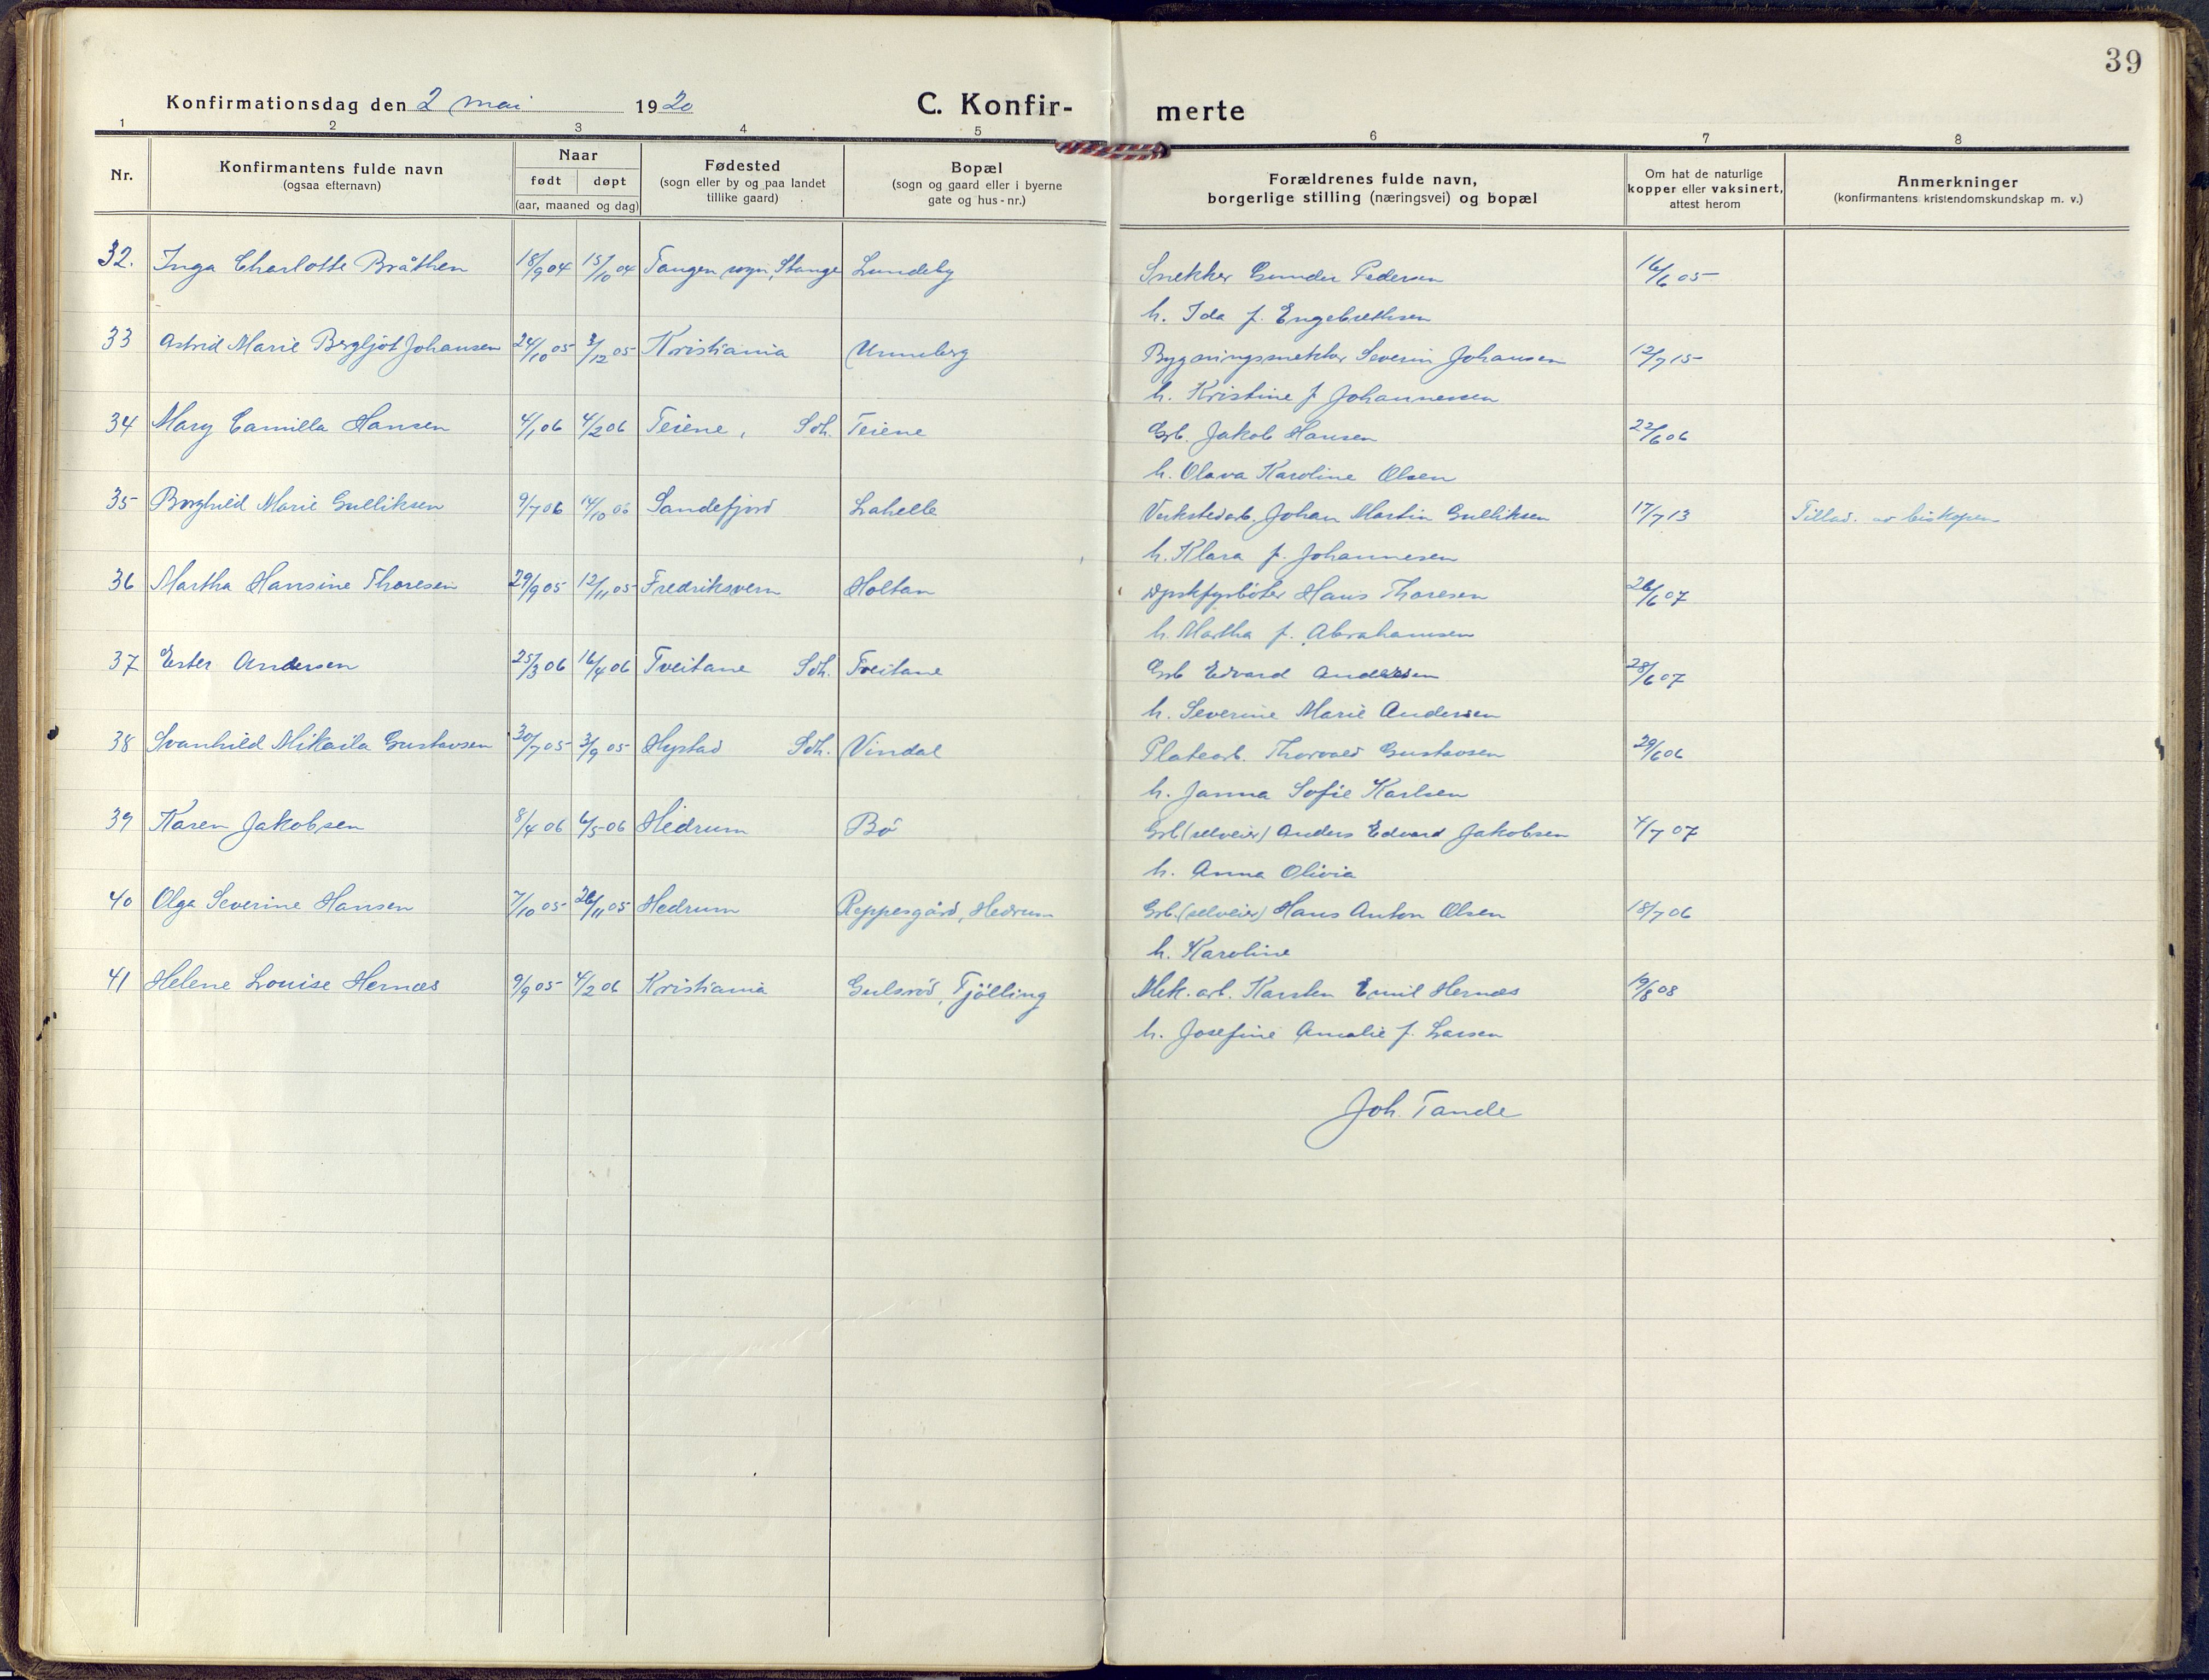 39
Konfirmationsdag den 2 mai 1920
C. Konfir-
merte
1 2 3 4 5 6 7 8
Nr.
Konfirmantens fulde navn
(ogsaa efternavn)
Naar
født døpt
(aar, maaned og dag)
Fødested
(sogn eller by og paa landet
tillike gaard)
Bopæl
(sogn og gaard eller i byerne
gate og hus-nr.)
Forældrenes fulde navn,
borgerlige stilling (næringsvei) og bopæl
Om hat de naturlige
kopper eller vaksinert,
attest herom
Anmerkninger
(konfirmantens kristendomskundskap m. v.)
32. Inga Charlotte Bråthen 18/9 04 15/10 04 Tangen sogn, Stange Lundeby Snekker Gunder Pedersen 16/6 05
h. Ida f. Engebrethsen
33 Astrid Marie Bergljot Johansen 24/10 05 3/12 05 Kristiania Unneberg Bygningssnekker Severin Johansen 12/7 15
h. Kristine f Johannessen
34 Mary Camilla Hansen 4/1 06 4/2 06 Teiene, Sdh. Teiene Grb. Jakob Hansen 22/6 06
h. Olava Karoline Olsen
35 Borghild Marie Gulliksen 9/7 06 14/10 06 Sandefjord Lahelle Verkstedarb. Johan Martin Gulliksen 17/7 13 Tillad. av biskopen
h. Klara f. Johannesen
36 Martha Hansine Thoresen 29/9 05 12/11 05 Fredriksvern Holtan Hans Thoresen 26/6 07
h. Martha f. Abrahamsen
37 Ester Andersen 25/3 06 16/4 06 Tveitane Sdh. Tveitane Grb Edvard Andersen 28/6 07
h. Severine Marie Andersen
38 Svanhild Mikaila Gustavsen 30/7 05 3/9 05 Hystad Sdh. Vindal Platearb. Thorvald Gustavsen 29/6 06
h. Janna Sofie Karlsen
39 Karen Jakobsen 8/4 06 6/5 06 Hedrum Bö Grb (selveier) Anders Edvard Jakobsen 4/7 07
h. Anna Olivia
40 Olga Severine Hansen 7/10 05 26/11 05 Hedrum Reppesgård, Hedrum Grb. (selveier) Hans Anton Olsen 18/7 06
h. Karoline
41 Helene Louise Hernæs 9/9 05 4/2 06 Kristiania Gulsrød, Tjölling Mek. arb. Karsten Emil Hernæs 19/8 08
h. Josefine Amalie f. Larsen
Joh. Tande